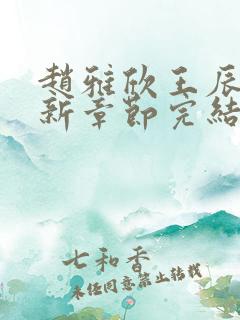 趙雅欣王辰
新章節完結
七和香
未經同意禁止轉載